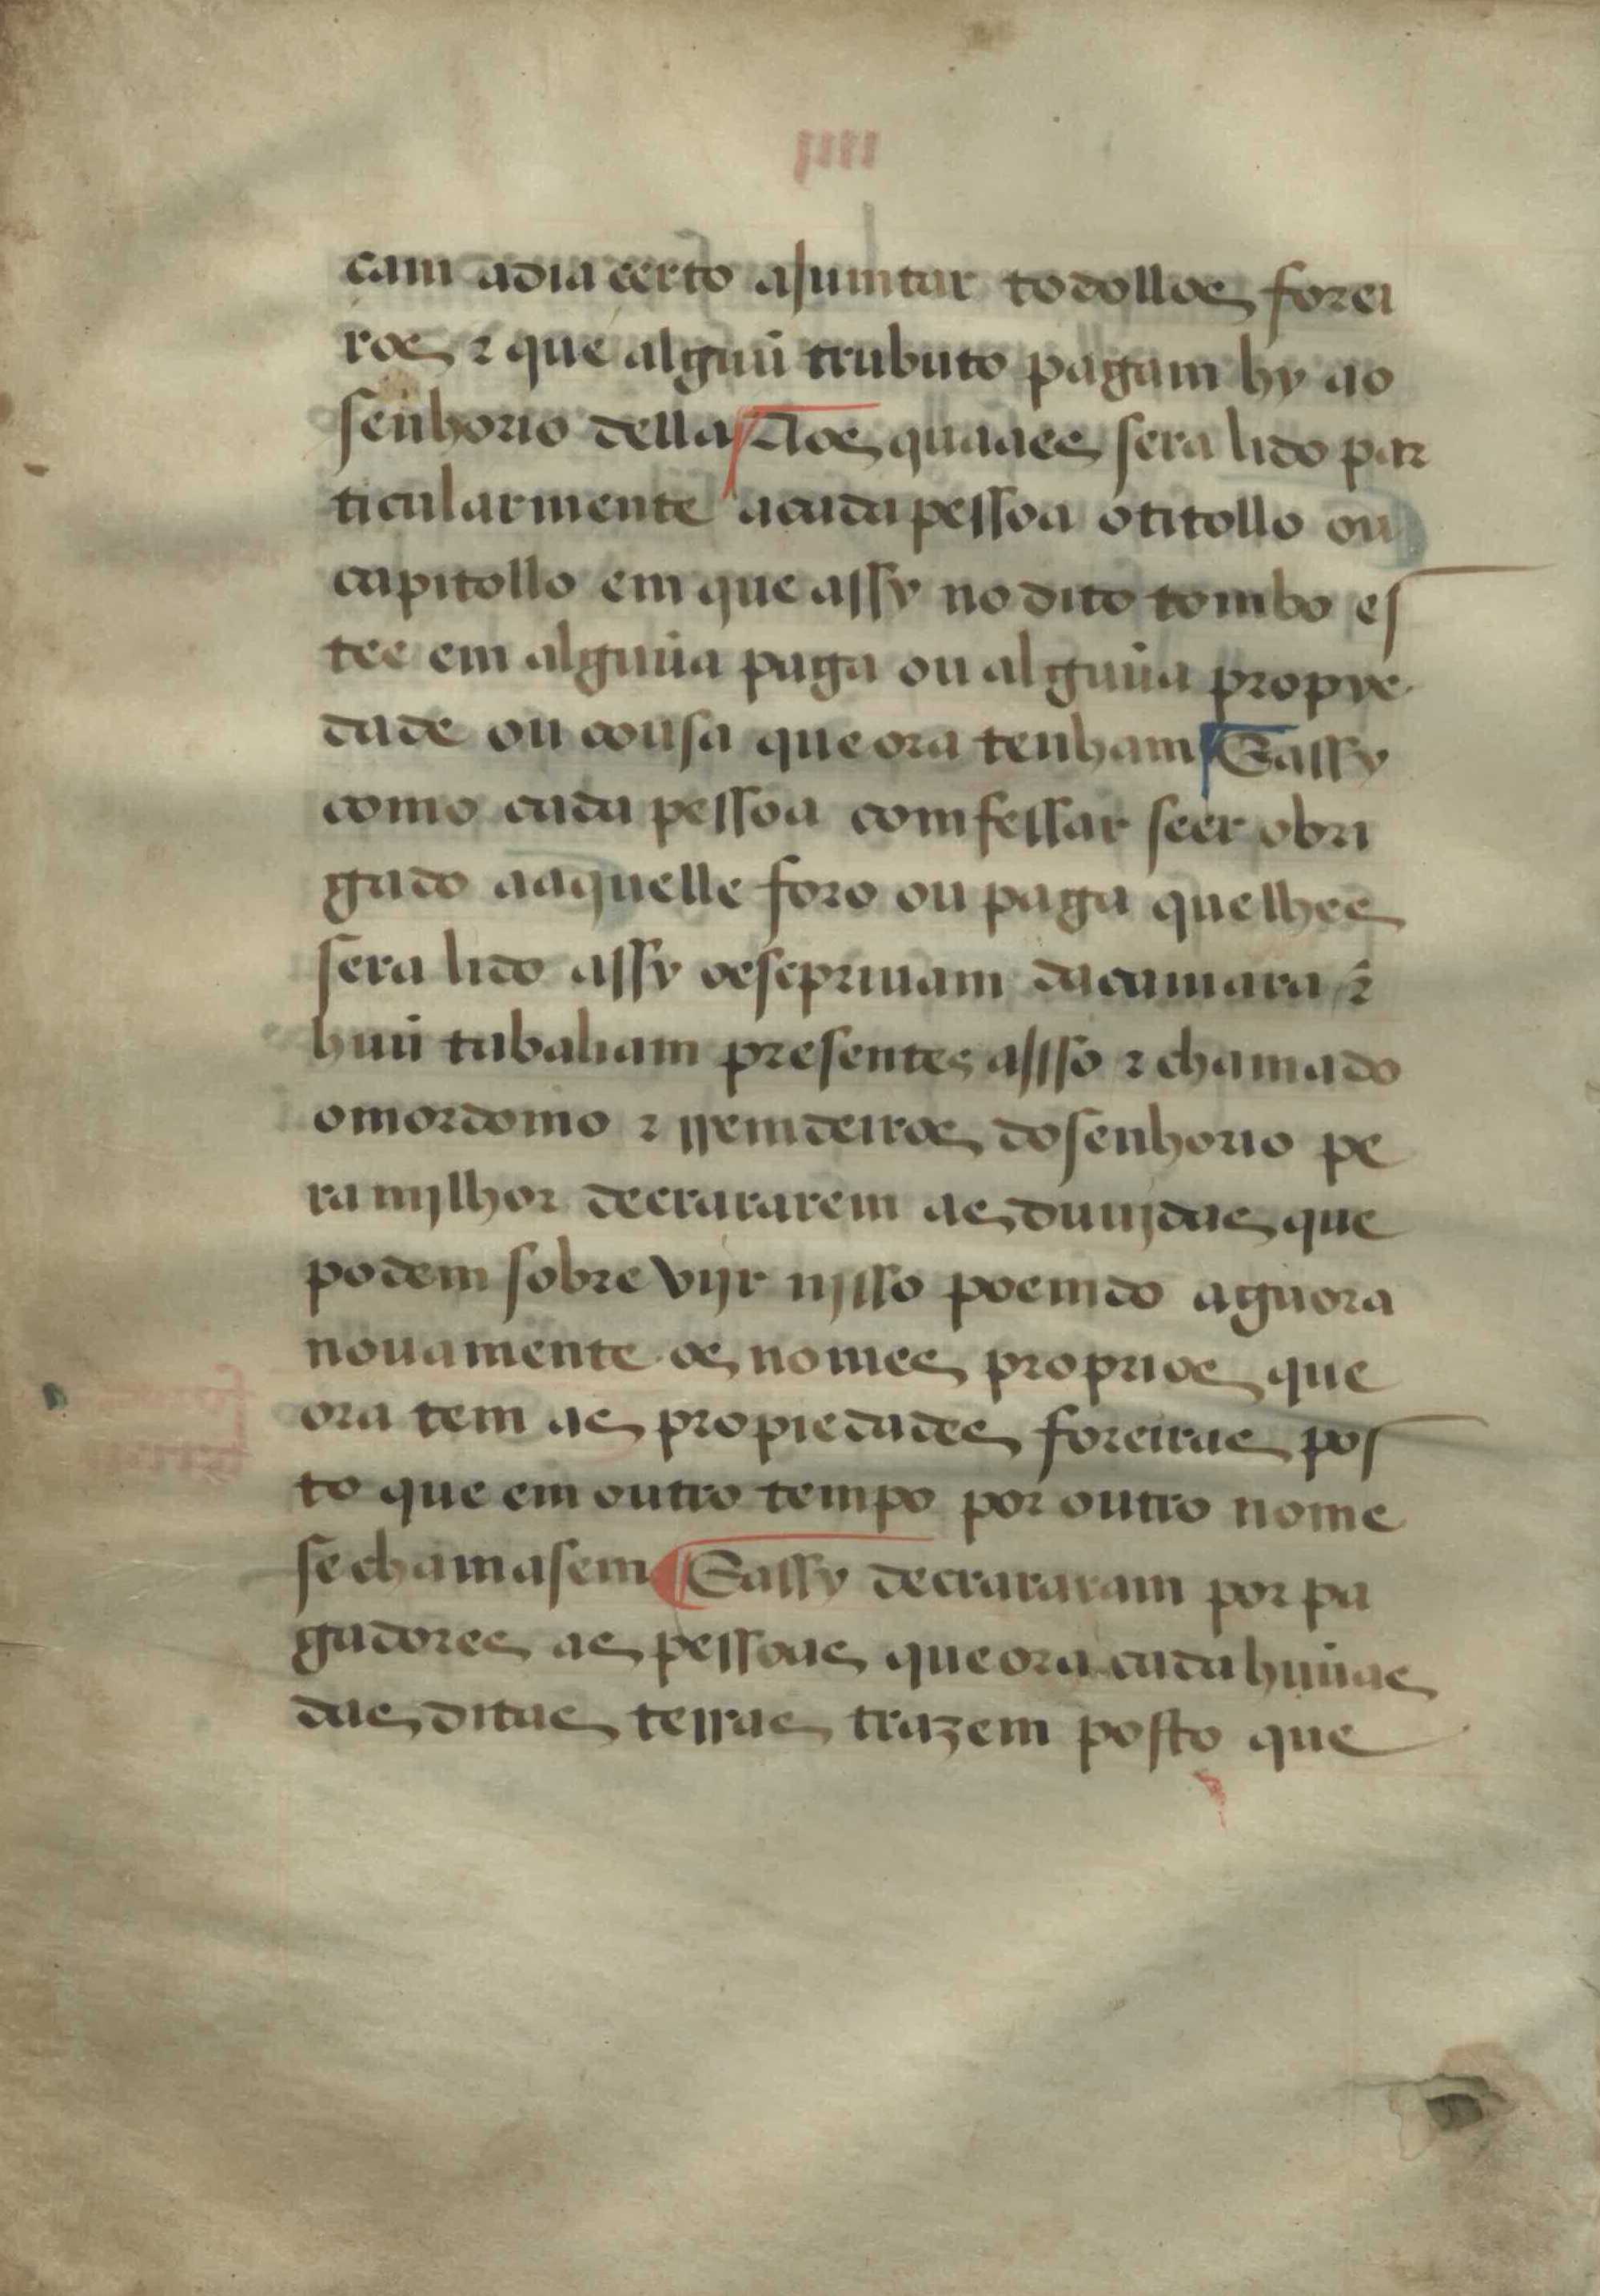 cam a dia certo ajumtar todollos forei
ros ⁊ que alguũ trubuto pagam hy ao
senhorio della Aos quaaes sera lido par
ticularmente a cada pessoa o titollo ou
capitollo em que assy no dito tombo es
tee em alguũa paga ou alguũa propye
dade ou cousa que ora tenham E assy
como cada pessoa comfessar seer obri
gado aaquelle foro ou paga que lhes
sera lido assy o escprivam da camara ⁊
huũ tabaliam presentes a isso ⁊ chamado
o mordomo ⁊ rremdeiros do senhorio pe
ra mjlhor decrararem as duujdas que
podem sobre vijr njsso poemdo aguora
nouamente os nomes proprios que
ora tem as propiedades foreiras pos
to que em outro tempo por outro nome
se chamasem E assy decrararam por pa
gadores as pessoas que ora cada huũas
das ditas terras trazem posto que